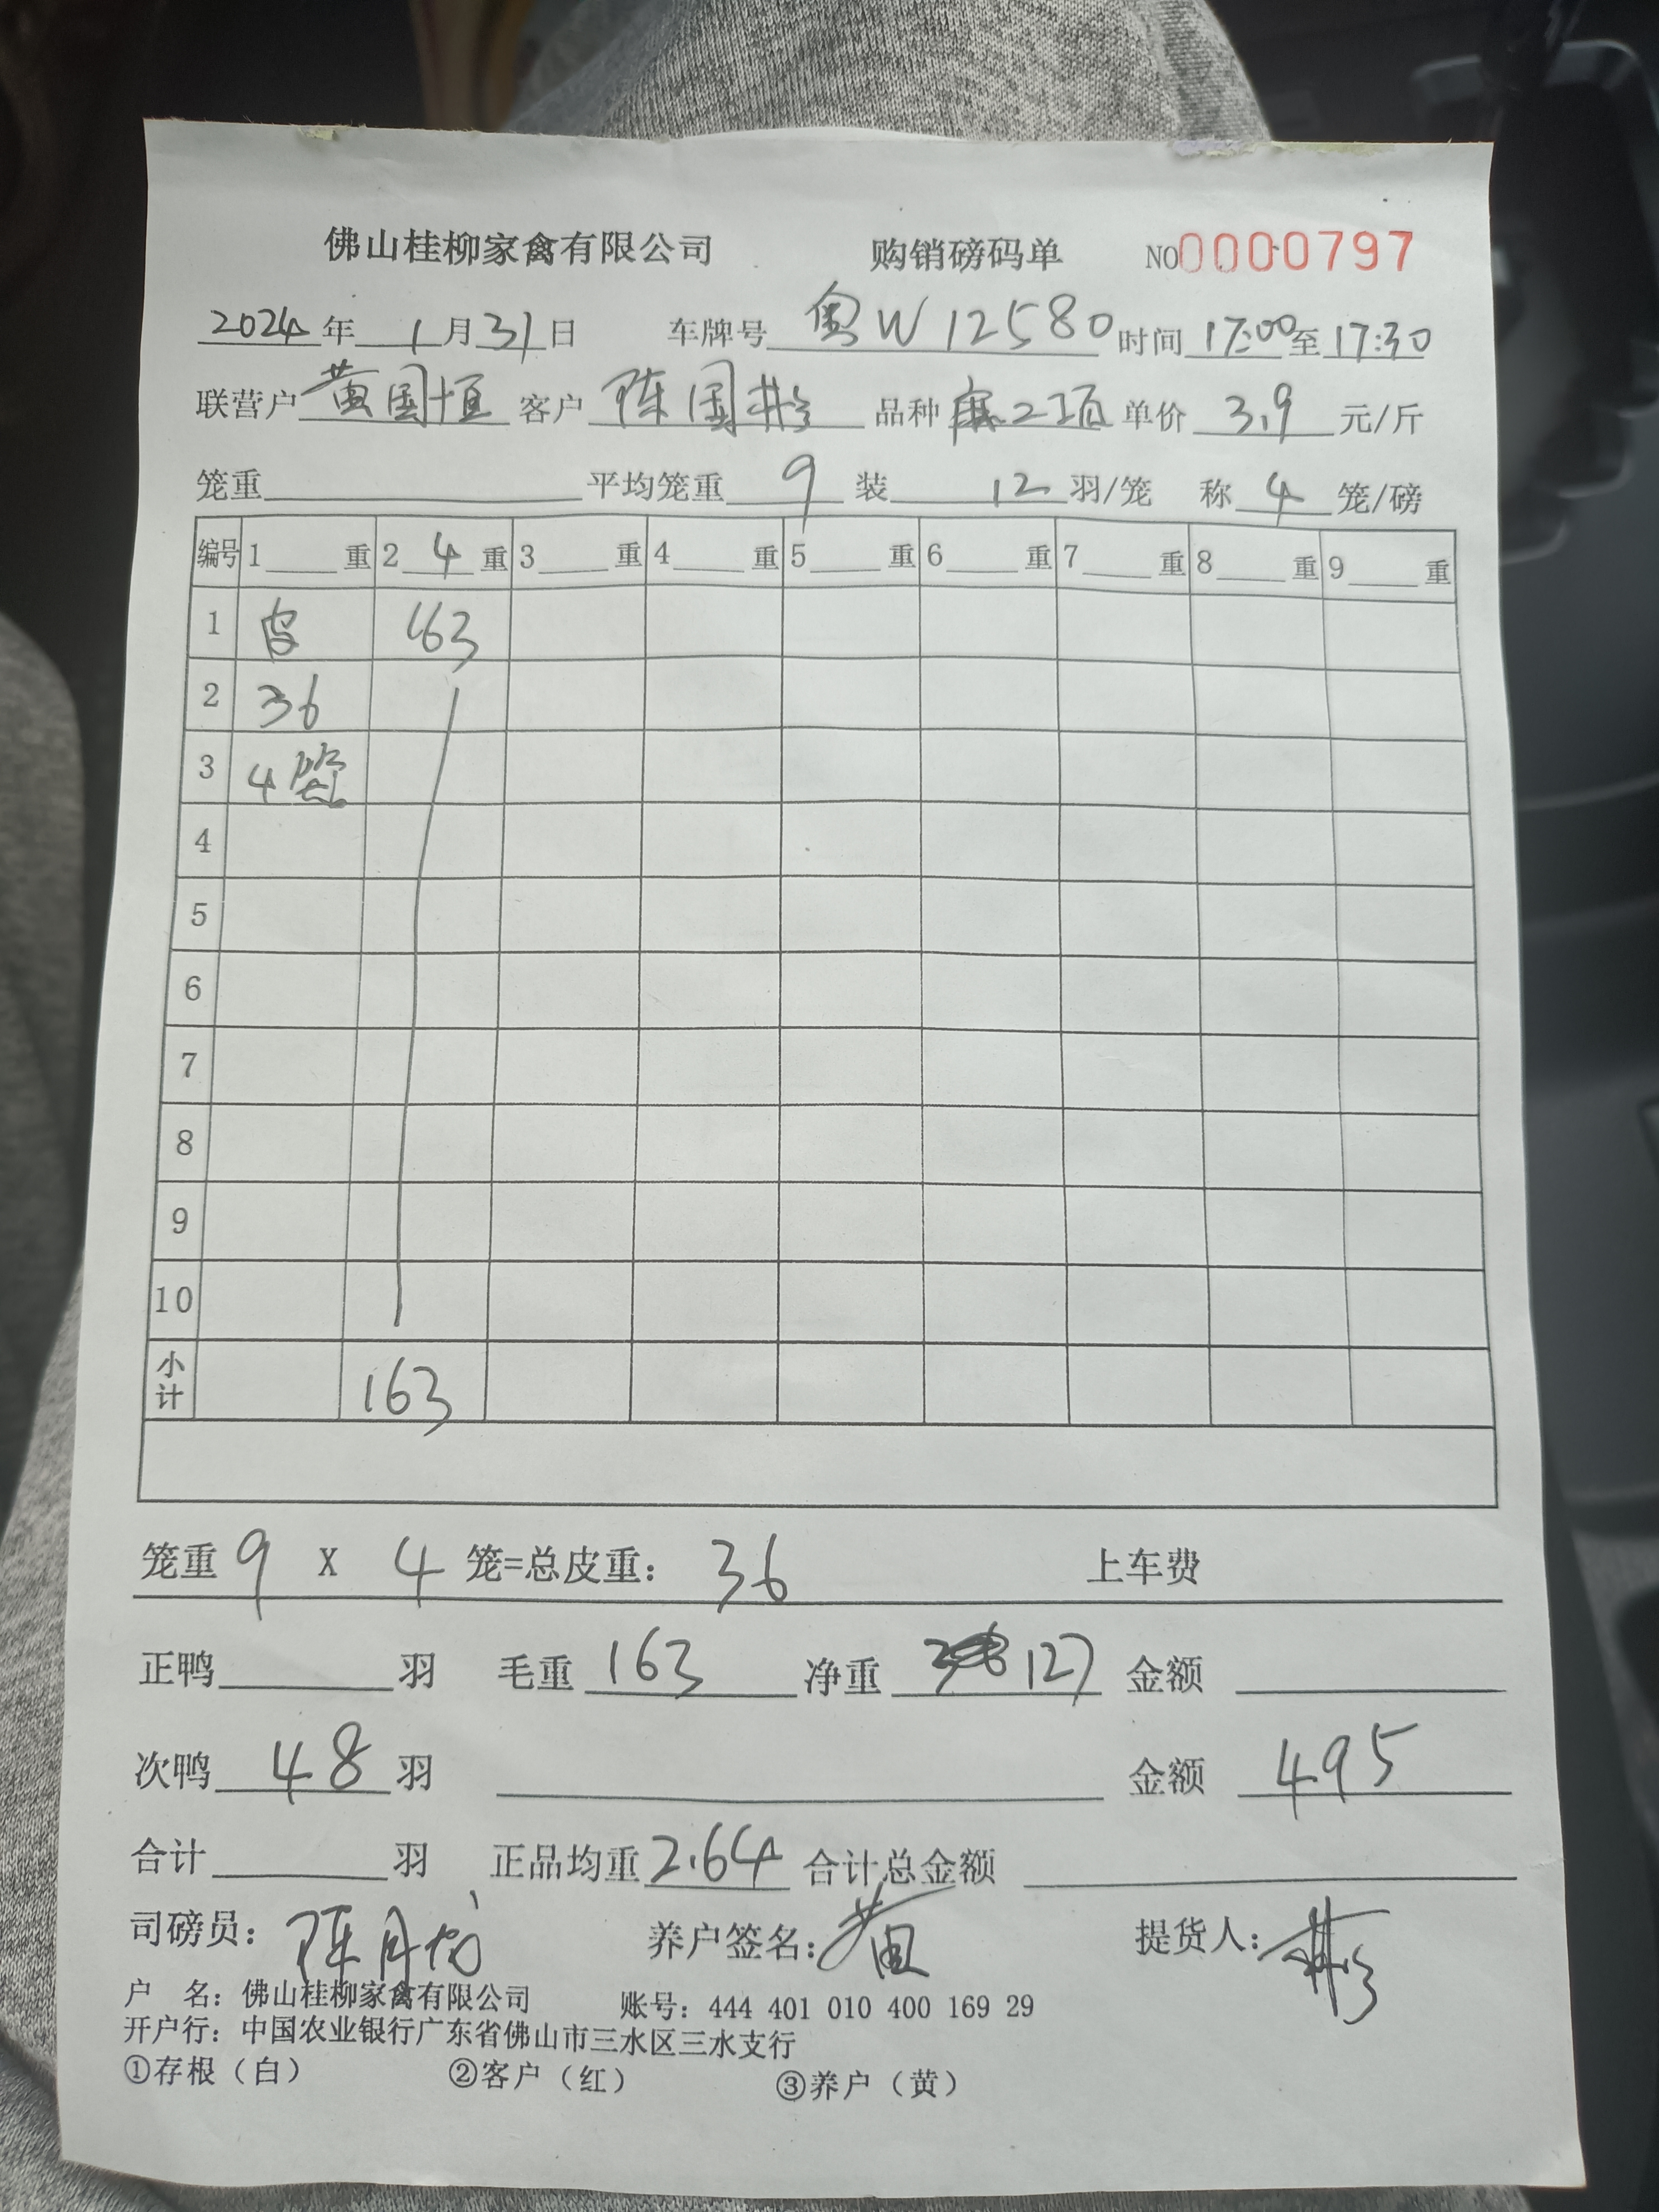 佛山桂柳家禽有限公司 购销磅码单 NO0000797
2024年1月31日 车牌号 粤W12580 时间 17:00至17:30
联营户 黄国恒 客户 陈国 品种 单价 3.9 元/斤
笼重 平均笼重 9 装 12 羽/笼 称 4 笼/磅
编号 1 重 2 4 重 3 重 4 重 5 重 6 重 7 重 8 重 9 重
1 皮 163
2 36
3 4笼
4
5
6
7
8
9
10
小计 163
笼重 9 X 4 笼=总皮重: 36 上车费
正鸭 羽 毛重 163 净重 127 金额
次鸭 48 羽 金额 495
合计 羽 正品均重 2.64 合计总金额
司磅员: 陈月 养户签名: 黄国 提货人:
户 名: 佛山桂柳家禽有限公司 账号: 444 401 010 400 169 29
开户行: 中国农业银行广东省佛山市三水区三水支行
①存根（白） ②客户（红） ③养户（黄）